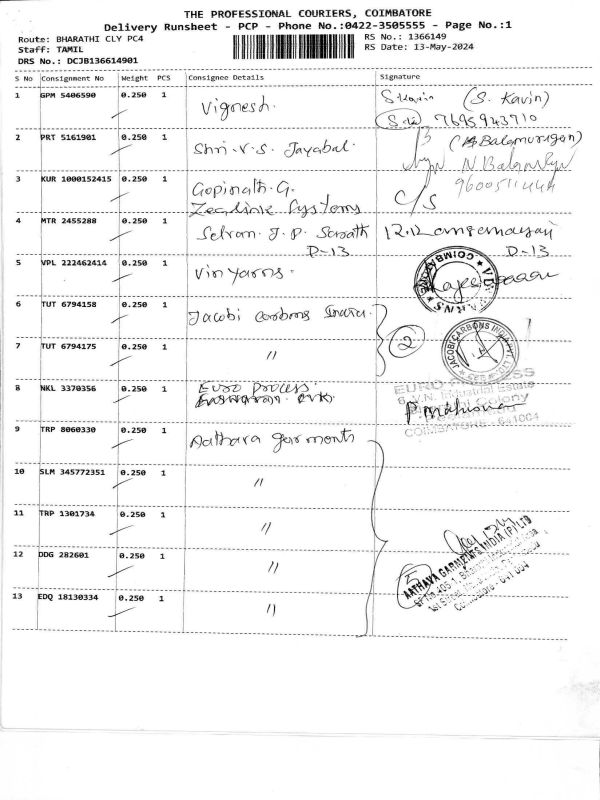 THE PROFESSIONAL COURIERS, COIMBATORE
Delivery Runsheet - PCP - Phone No.:0422-3505555 - Page No.:1
Route: BHARATHI CLY PC4
RS No.: 1366149
Staff: TAMIL
RS Date: 13-May-2024
DRS No.: DCJB136614901
S No Consignment No Weight PCS Consignee Details Signature
1 GPM 5406590 0.250 1 Vignesh. (S. Kavin)
7695943710
2 PRT 5161901 0.250 1 Shri.V.S. Jayabal. (Balamurugan)
3 KUR 1000152415 0.250 1 Gopinath.G. C/S
Zealink Systems
4 MTR 2455288 0.250 1 Selvan. J. P. Sarath
D-13 D-13
5 VPL 222462414 0.250 1 Vin Yarns.
COIMBATORE
6 TUT 6794158 0.250 1 Jacobi Carbons
JACOBI CARBONS INDIA PVT. LTD.
7 TUT 6794175 0.250 1 " 2
8 NKL 3370356 0.250 1 Euro Process.
EURO PROCESS
6, V.N. Industrial Estate
Bharathi Colony
COIMBATORE - 641004
9 TRP 8060330 0.250 1 Aathava garments
10 SLM 345772351 0.250 1 "
11 TRP 1301734 0.250 1 "
12 DDG 282601 0.250 1 " 5
AATHAVA GARMENTS INDIA (P) LTD
Coimbatore - 641 004
13 EDQ 18130334 0.250 1 "